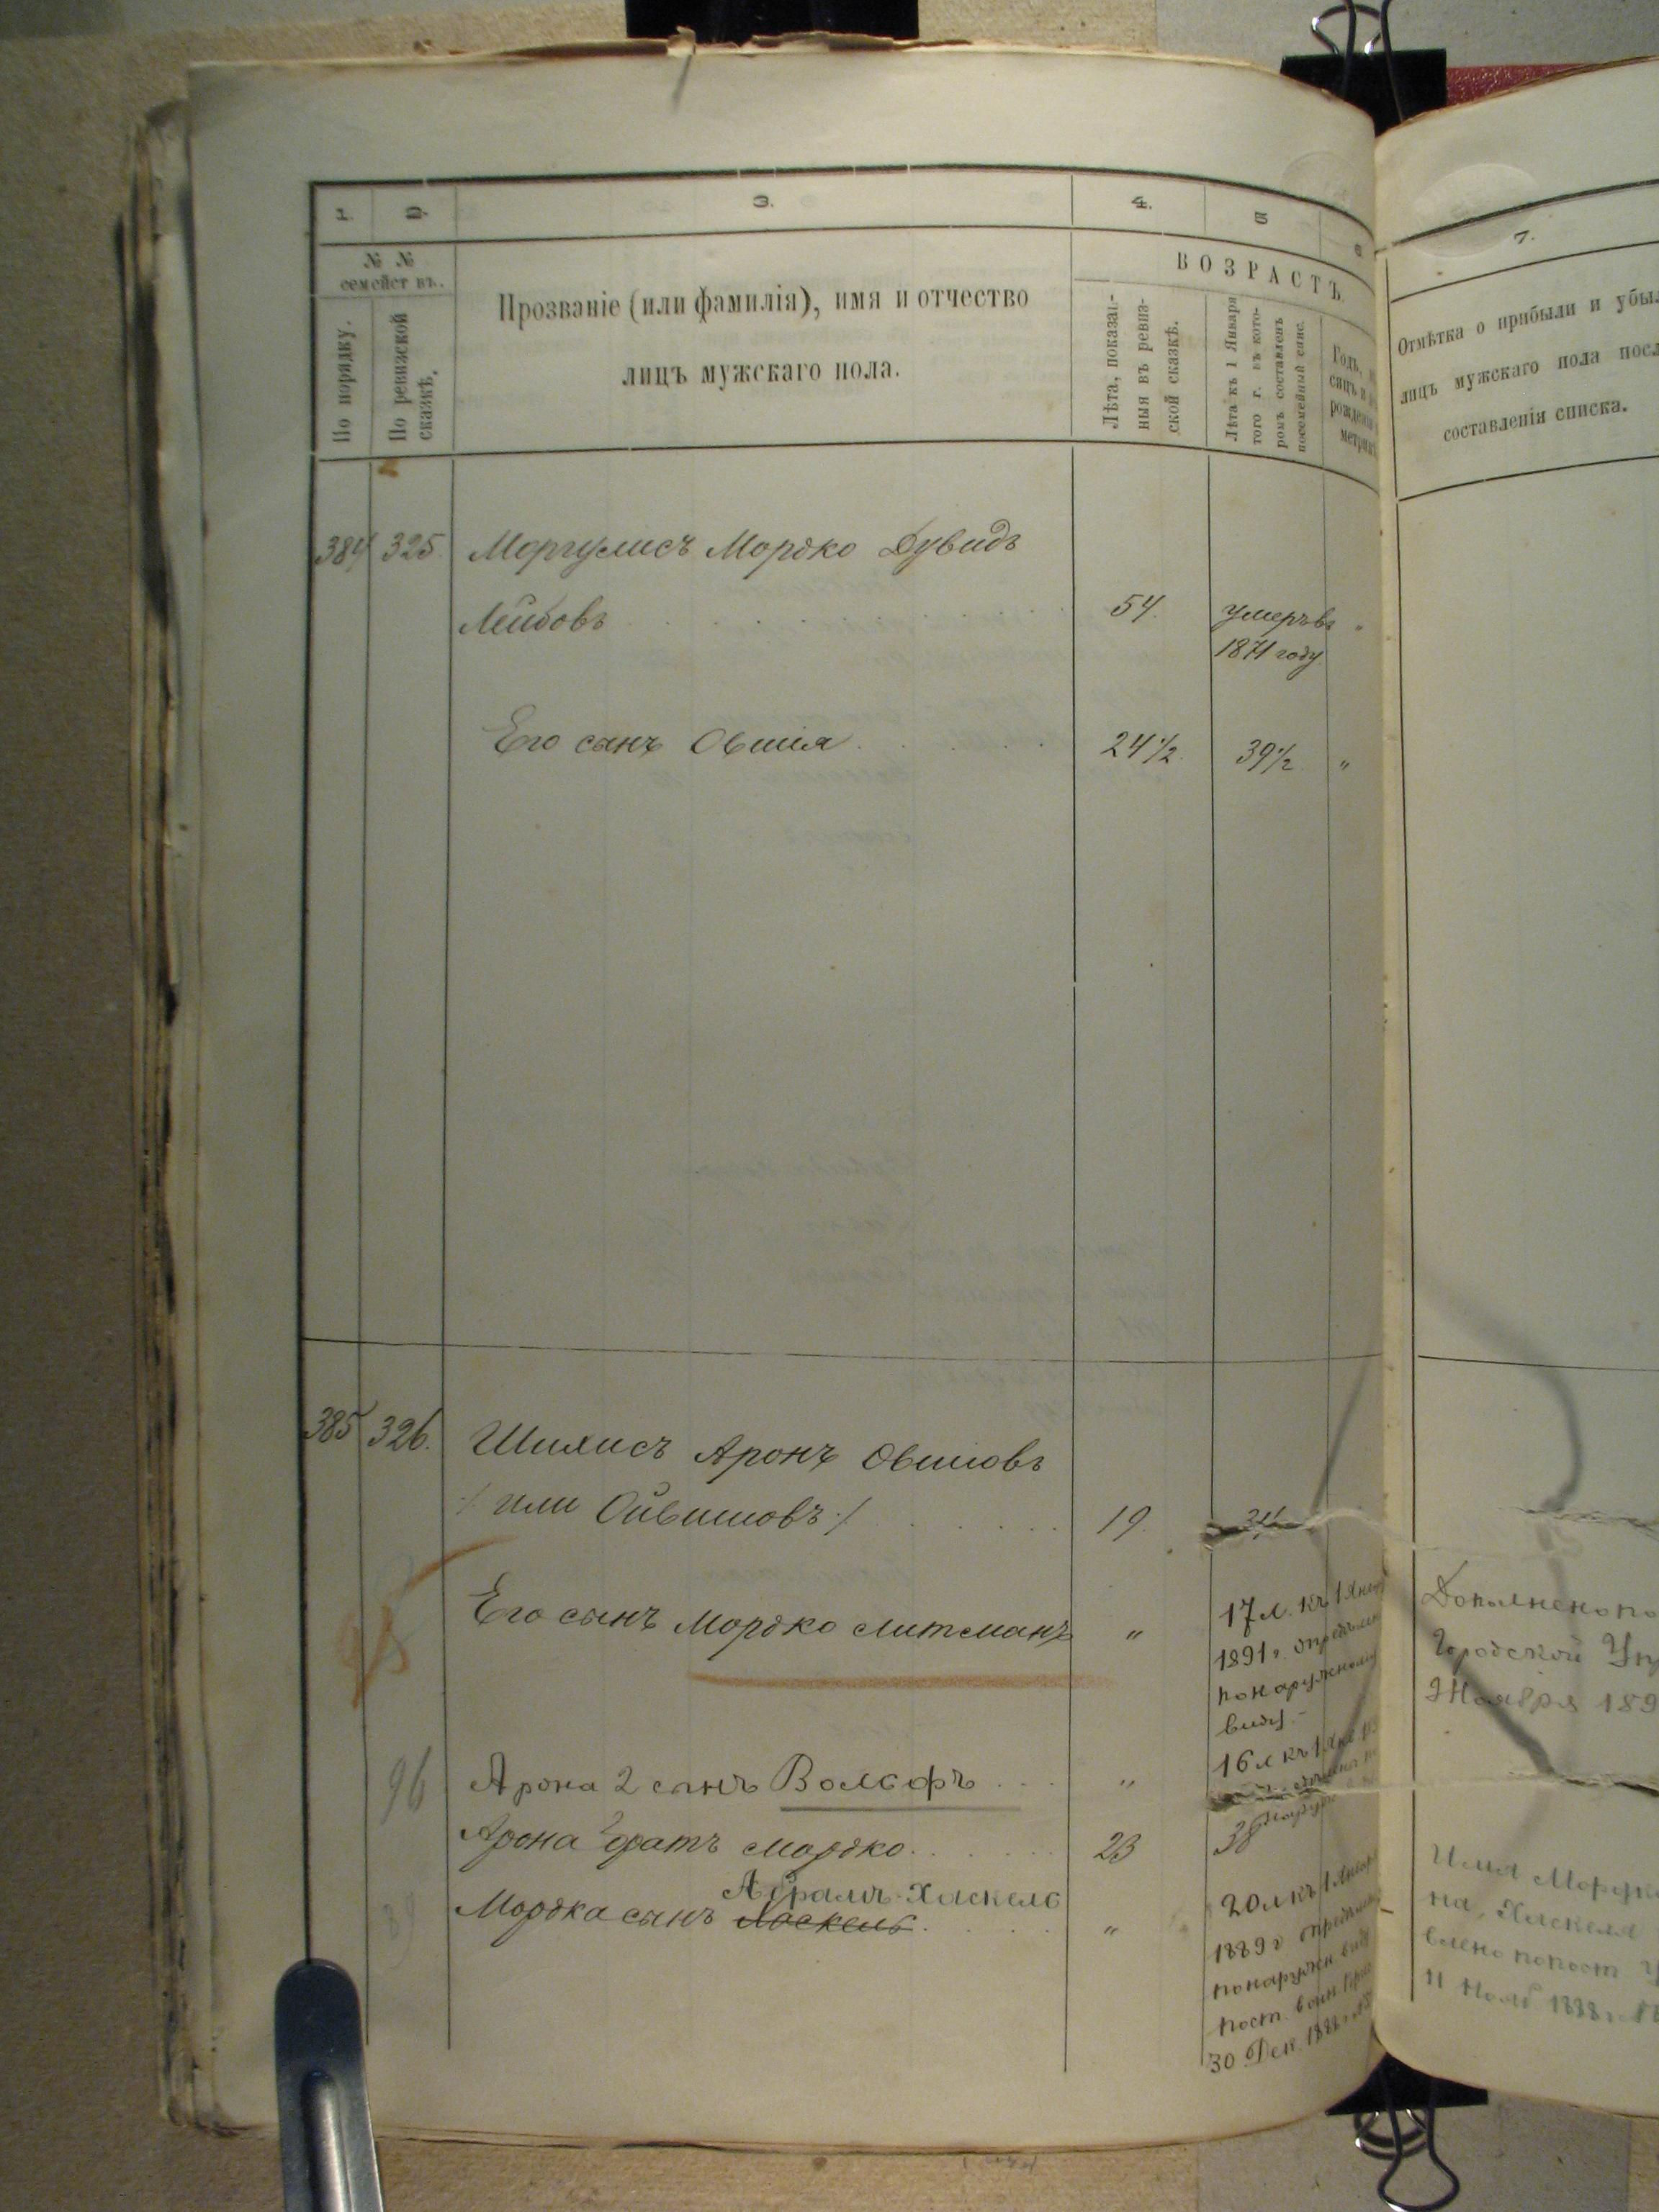 1.
2.
3.
4.
5
6
7.
№ №
семейст въ.
По порядку.
По ревизской
сказкѣ.
Прозваніе (или фамилія), имя и отчество
лицъ мужскаго пола.
ВОЗРАСТЪ
Лѣта, показан-
ныя въ ревиз-
ской сказкѣ.
Лѣта къ 1 Января
того г. въ кото-
ромъ составленъ
посемейный спис.
Годъ,
рожденія
Отмѣтка о прибыли и убыл
лицъ мужскаго пола посл
составленія списка.
384 325 Моргулисъ Мордко Дувидъ
Лейбовъ 54. умеръ въ "
1871 году
Его сынъ Овшія 24½ 39½ "
385 326. Шилисъ Аронъ Овшіовъ
/ или Ойвшіовъ / 19. 34
95 Его сынъ Мордко Литманъ "
17 л. къ 1 Янв
1891 г. опредѣлен
по наружному
виду.
Дополнено по
Городской Уп
9 Ноября 189
96 Арона 2 сынъ Волфъ "
16 л къ 1 Янв
Арона 2 братъ Мордко 23 38
89 Мордка сынъ Хаскель Абрамъ-Хаскель "
20 л къ 1 Января
1889 г опредѣлен
по наружн виду
пост. воин. прис
30 Дек. 1888 г
Имя Мордк
на, Хаскеля
влено по пост У
11 Нояб 1888 г.